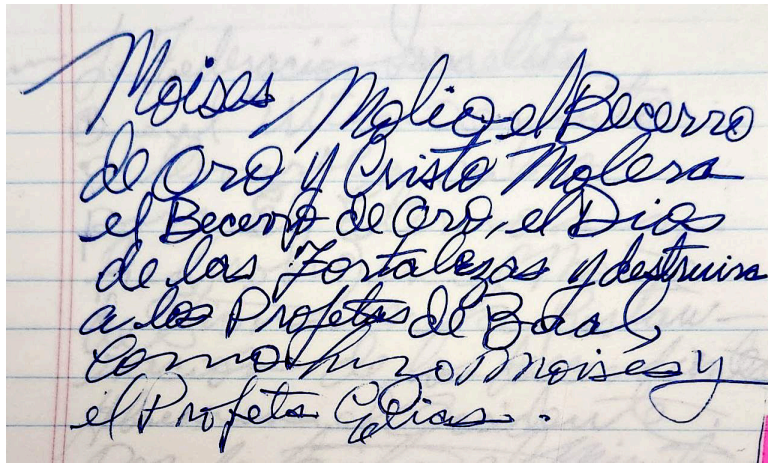 Moises Molio el Becerro
de Oro y Cristo Molera
el Becerro de Oro, el Dios
de las Fortalezas y destruira
a los Profetas de Baal,
como hizo Moisés y
el Profeta Elias.